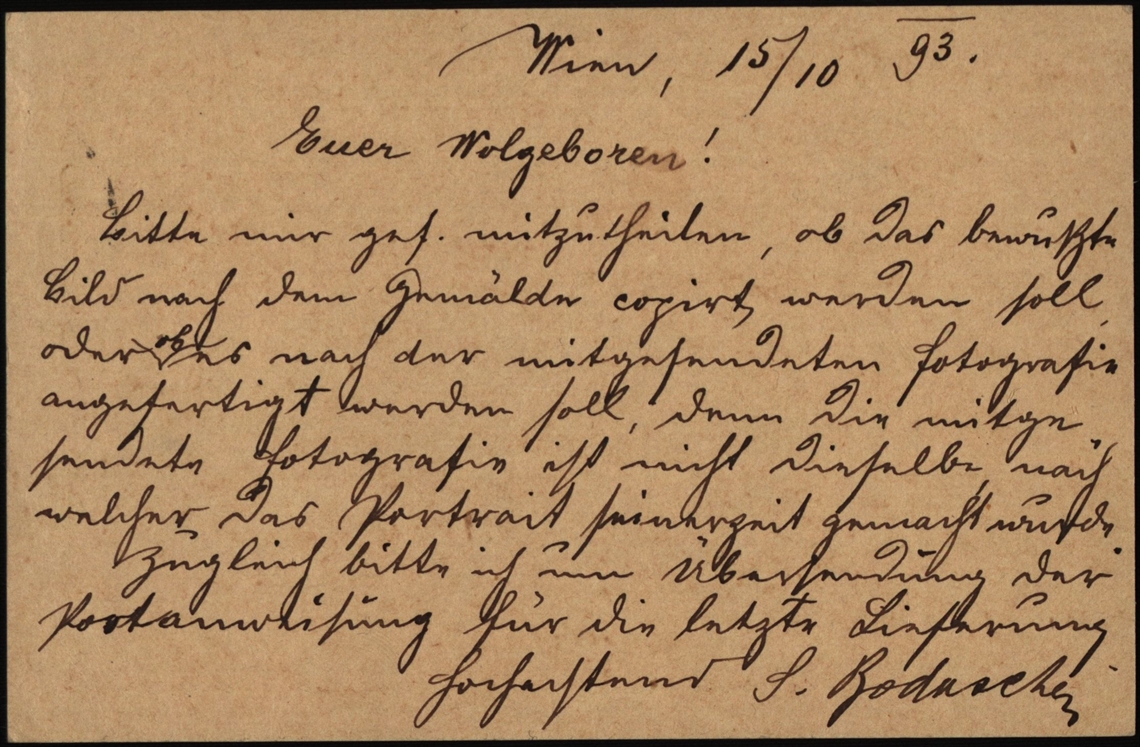 Wien, 15/10 93.
Euer Wolgeboren!
Bitte mir gef. mitzutheilen, ob das bewußte
Bild nach dem Gemälde copirt werden soll,
oder ob es nach der mitgesendeten Fotografie
angefertigt werden soll, denn die mitge
sendete Fotografie ist nicht dieselbe, nach
welcher das Portrait seinerzeit gemacht wurde
Zugleich bitte ich um Übersendung der
Postanweisung für die letzte Lieferung
Hochachtend S.